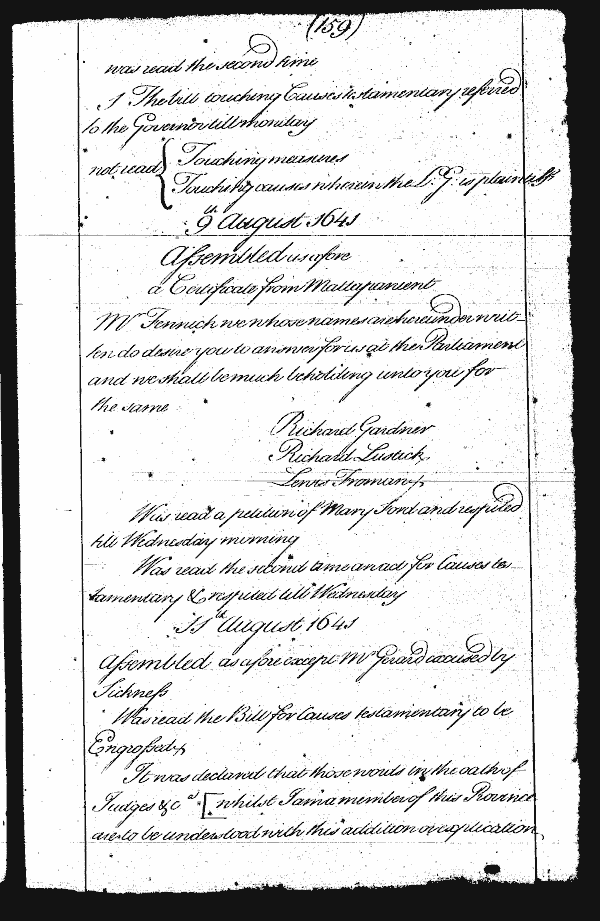 (159)
was read the second time
1 The bill touching Causes testamentary referred
to the Governor till monday
not read { Touching measures
Touching causes wherein the L. G. is plaintiff
9th August 1641
Assembled as afore
a Certificate from Mattapanient
Mr Fennick we whose names are hereunder writ-
ten do desire you to answer for us at the Parliament
and we shall be much beholding unto you for
the same
Richard Gardner
Richard Lustick,
Lewis Froman
Was read a petition of Mary Ford and respited
till Wednesday morning
Was read the second time an act for Causes tes
tamentary & respited till Wednesday
11th August 1641
Assembled as afore except Mr Gerard excused by
Sickness
Was read the Bill for Causes testamentary to be
Engrossed
It was declared that those words in the oath of
Judges &ca [whilst I am a member of this Province
are to be understood with this addition or explication